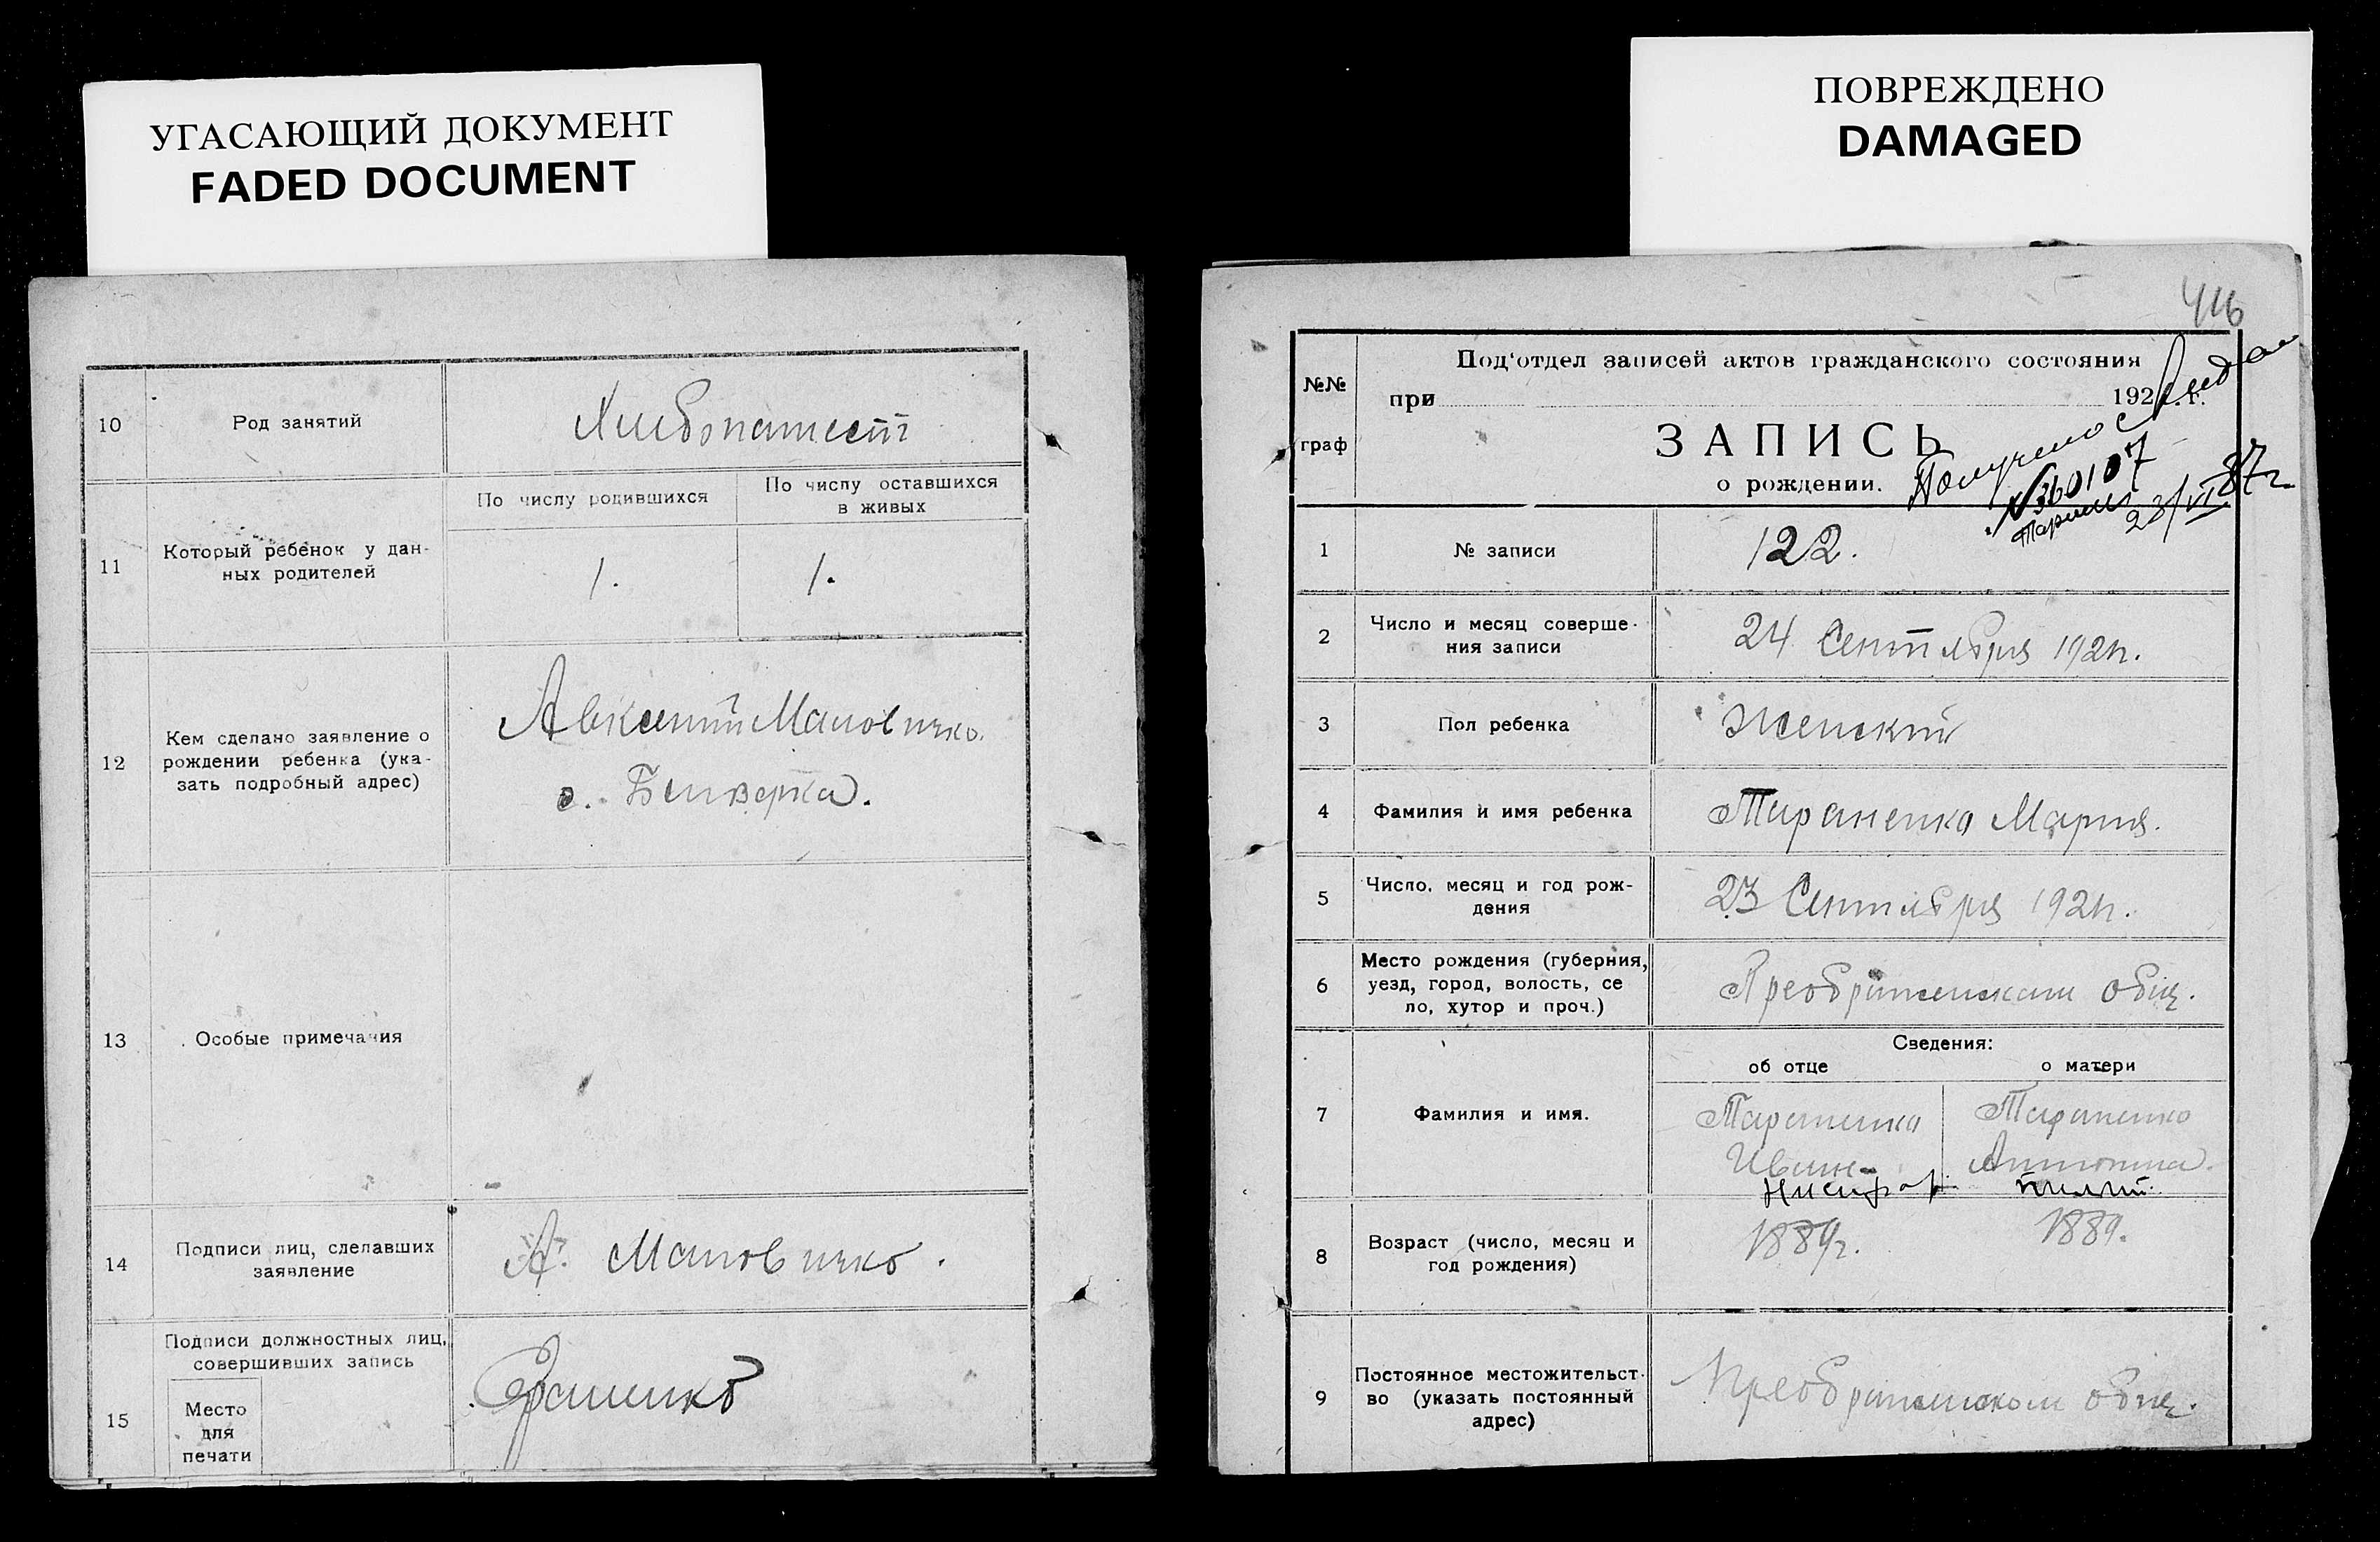 УГАСАЮЩИЙ ДОКУМЕНТ
FADED DOCUMENT
10
Род занятий
11
Который ребенок у дан-
ных родителей
По числу родившихся
По числу оставшихся
в живых
1.
1.
12
Кем сделано заявление о
рождении ребенка (ука-
зать подробный адрес)
13
Особые примечания
14
Подписи лиц, сделавших
заявление
А.
15
Подписи должностных лиц,
совершивших запись
Место
для
печати
ПОВРЕЖДЕНО
DAMAGED
416
№№
граф
Под'отдел записей актов гражданского состояния
при
192 г.
ЗАПИСЬ
о рождении.
Получено
№360107
23/VI 87г
1
№ записи
122.
2
Число и месяц соверше-
ния записи
24 Сентября 192 г.
3
Пол ребенка
Женский
4
Фамилия и имя ребенка
Тараненко Мария.
5
Число, месяц и год рож-
дения
23 Сентября 192 г.
6
Место рождения (губерния,
уезд, город, волость, се
ло, хутор и проч.)
Преображенском общ.
7
Фамилия и имя.
Сведения:
об отце
о матери
Тараненко
Иван
Тараненко
Антонина.
8
Возраст (число, месяц и
год рождения)
1889г.
1889.
9
Постоянное местожительст-
во (указать постоянный
адрес)
Преображенском общ.